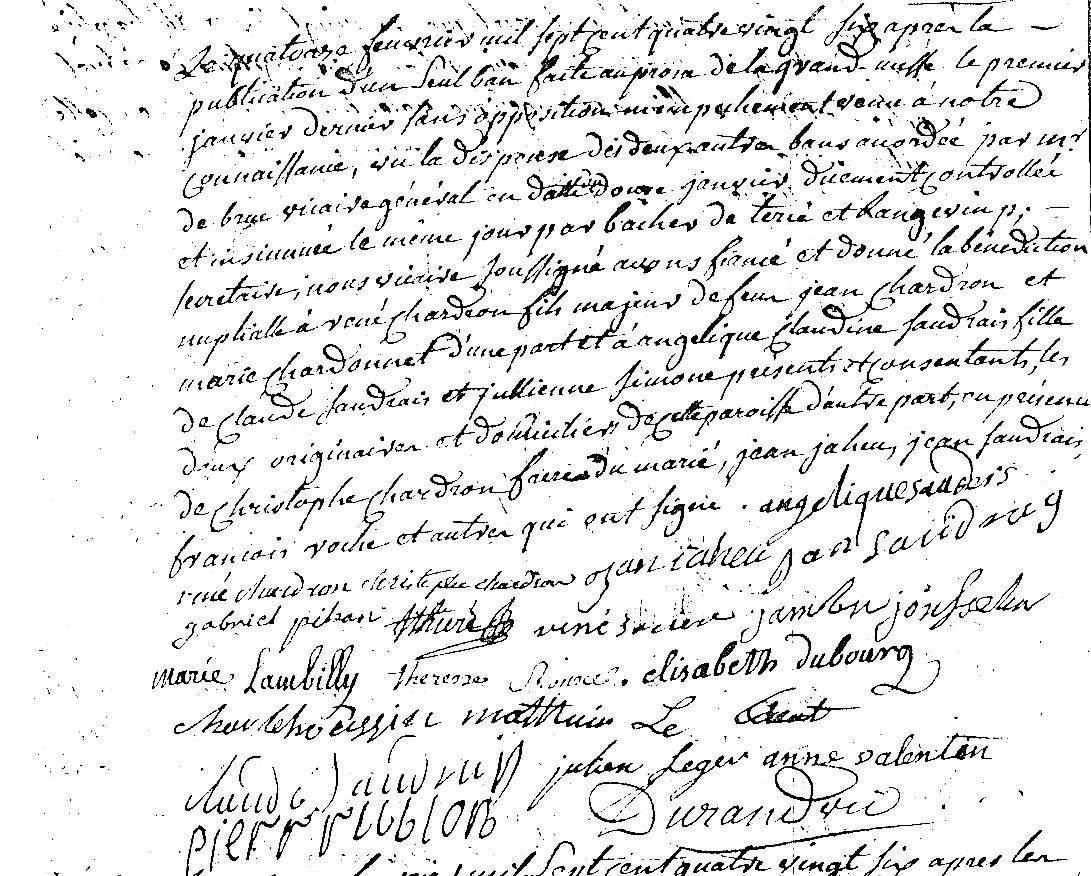 Le quatorze feuvrier mil sept cent quatre vingt six après la
publication d'un seul ban faite au prosne de la grand messe le premier
janvier dernier sans opposition ni empeschement venu à notre
connaissance, vu la dispense des deux autres bans accordée par mr
de bruc vicaire général en datte du douze janvier duement controllée
et insinuée le même jour par bacher de terié et Langevin p;
secretaire, nous vicaire soussigné avons fiancé et donné la bénédiction
nuptialle à rené Chardron fils majeur de feu jean Chardron et
marie Chardonnet d'une part et à angelique Claudine Saudrais fille
de Claude Saudrais et jullienne Simone présents et consentants, les
deux originaires et domiciliers de cette paroisse d'autre part, en présence
de Christophe Chardron frère du marié, jean jaheu, jean Saudrais,
francois roche et autres qui ont signé . angelique saudrais
rené chardron christophe chardron jan iaheu jan saudray
gabriel pihan rené jossselin
marie Lambilly therese elisabeth dubourg
mathurin Le
claude Saudrais julien Leger anne valentin
pierre
Durand vic
mil Sept cent quatre vingt six apres les